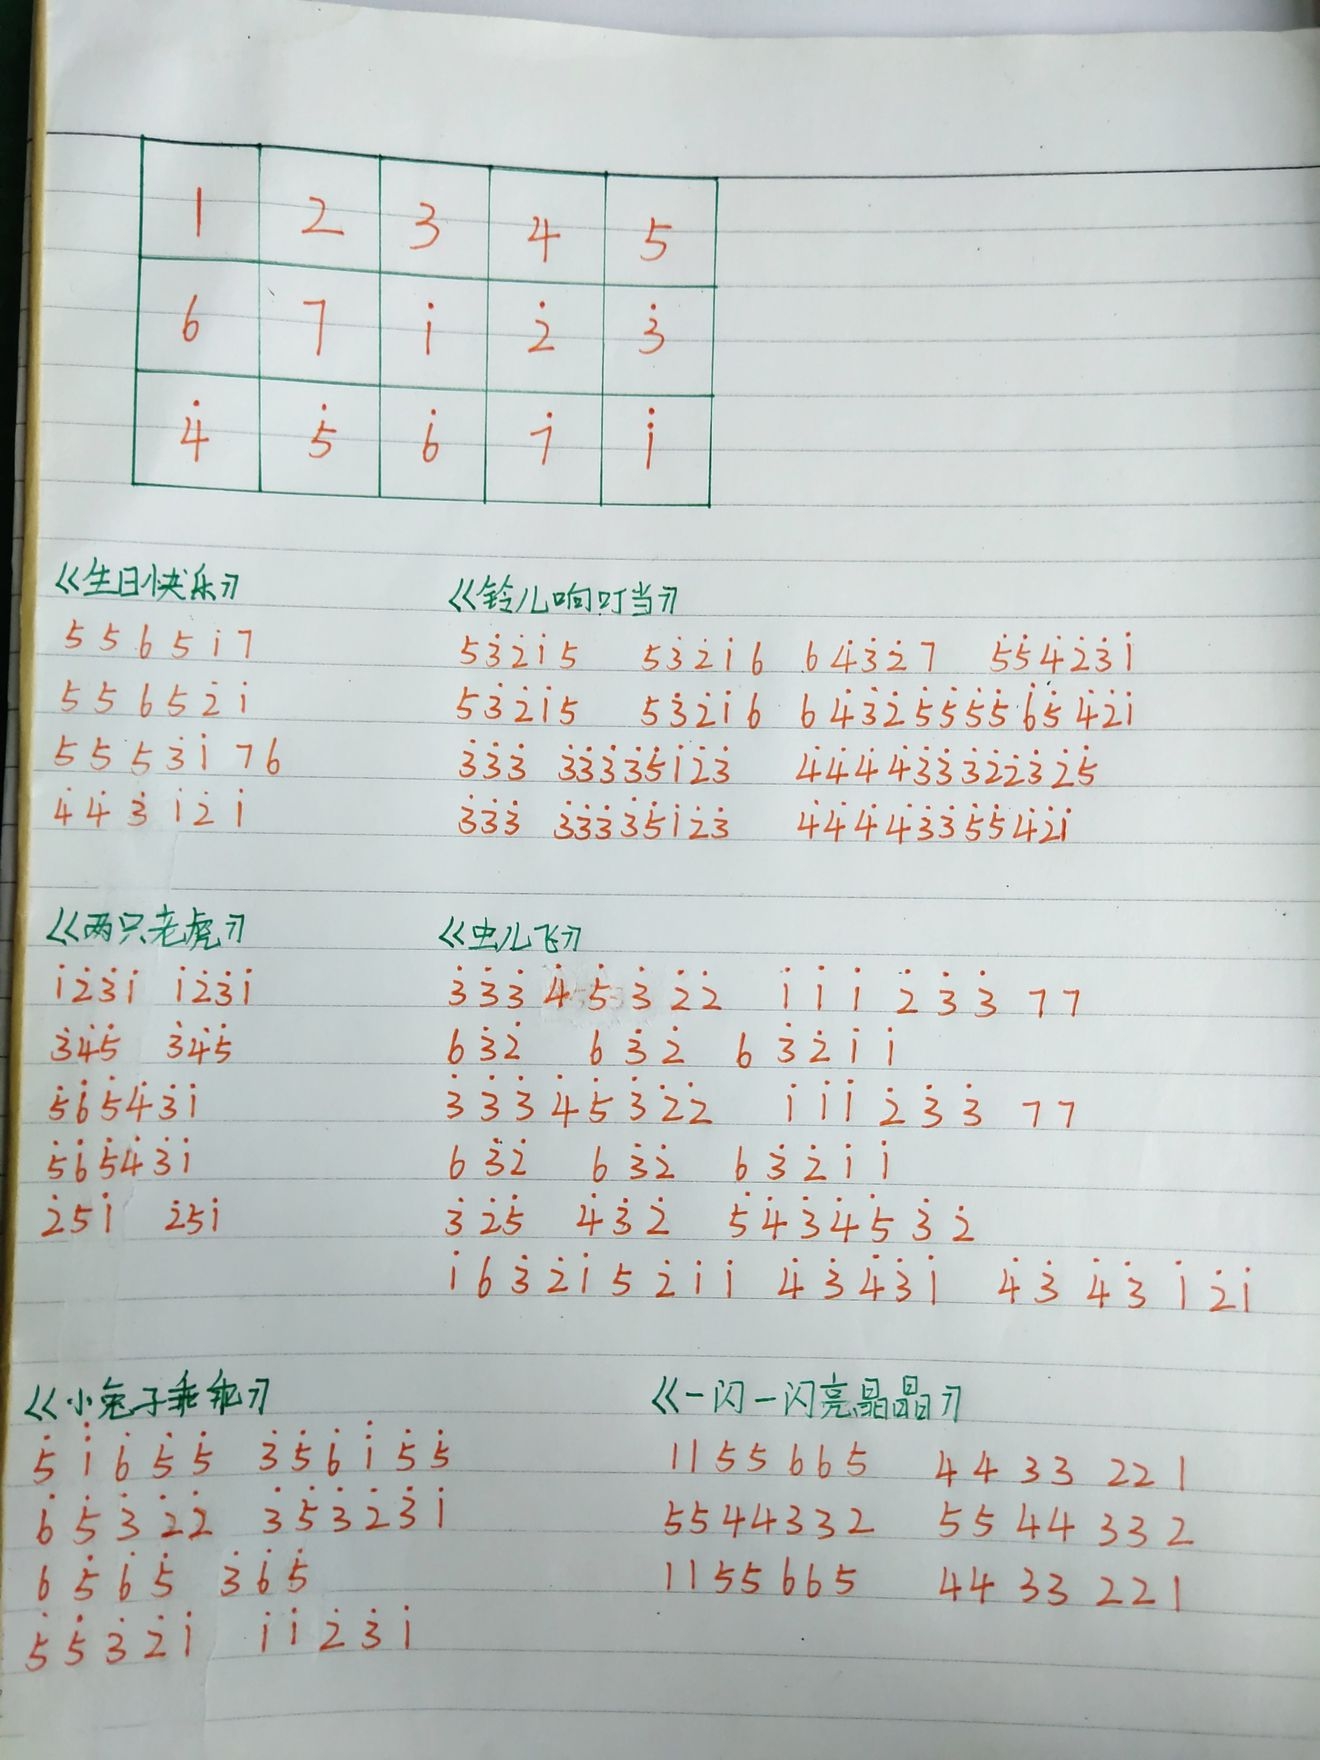 1 2 3 4 5
6 7 1̇ 2̇ 3̇
4̇ 5̇ 6̇ 7̇ 1̈
《生日快乐》
5 5 6 5 1̇ 7
5 5 6 5 2̇ 1̇
5 5 5̇ 3̇ 1̇ 7 6
4̇ 4̇ 3̇ 1̇ 2̇ 1̇
《铃儿响叮当》
53̇2̇1̇5 53̇2̇1̇6 64̇3̇2̇7 5̇5̇4̇2̇3̇1̇
53̇2̇1̇5 53̇2̇1̇6 64̇3̇2̇5̇5̇5̇5̇6̇5̇4̇2̇1̇
3̇3̇3̇ 3̇3̇3̇3̇5̇1̇2̇3̇ 4̇4̇4̇4̇3̇3̇3̇2̇2̇3̇2̇5̇
3̇3̇3̇ 3̇3̇3̇3̇5̇1̇2̇3̇ 4̇4̇4̇4̇3̇3̇5̇5̇4̇2̇1̇
《两只老虎》
1̇2̇3̇1̇ 1̇2̇3̇1̇
3̇4̇5̇ 3̇4̇5̇
5̇6̇5̇4̇3̇1̇
5̇6̇5̇4̇3̇1̇
2̇51̇ 2̇51̇
《虫儿飞》
3̇3̇3̇4̇5̇3̇2̇2̇ 1̇1̇1̇2̇3̇3̇77
63̇2̇ 63̇2̇ 63̇2̇1̇1̇
3̇3̇3̇4̇5̇3̇2̇2̇ 1̇1̇1̇2̇3̇3̇77
63̇2̇ 63̇2̇ 63̇2̇1̇1̇
3̇2̇5̇ 4̇3̇2̇ 5̇4̇3̇4̇5̇3̇2̇
1̇63̇2̇1̇52̇1̇1̇ 4̇3̇4̇3̇1̇ 4̇3̇4̇3̇1̇2̇1̇
《小兔子乖乖》
5̇1̈6̇5̇5̇ 3̇5̇6̇1̇5̇5̇
6̇5̇3̇2̇2̇ 3̇5̇3̇2̇3̇1̇
65̇6̇5̇ 3̇6̇5̇
5̇5̇3̇2̇1̇ 1̇1̇2̇3̇1̇
《一闪一闪亮晶晶》
1155665 4433221
5544332 5544332
1155665 4433221